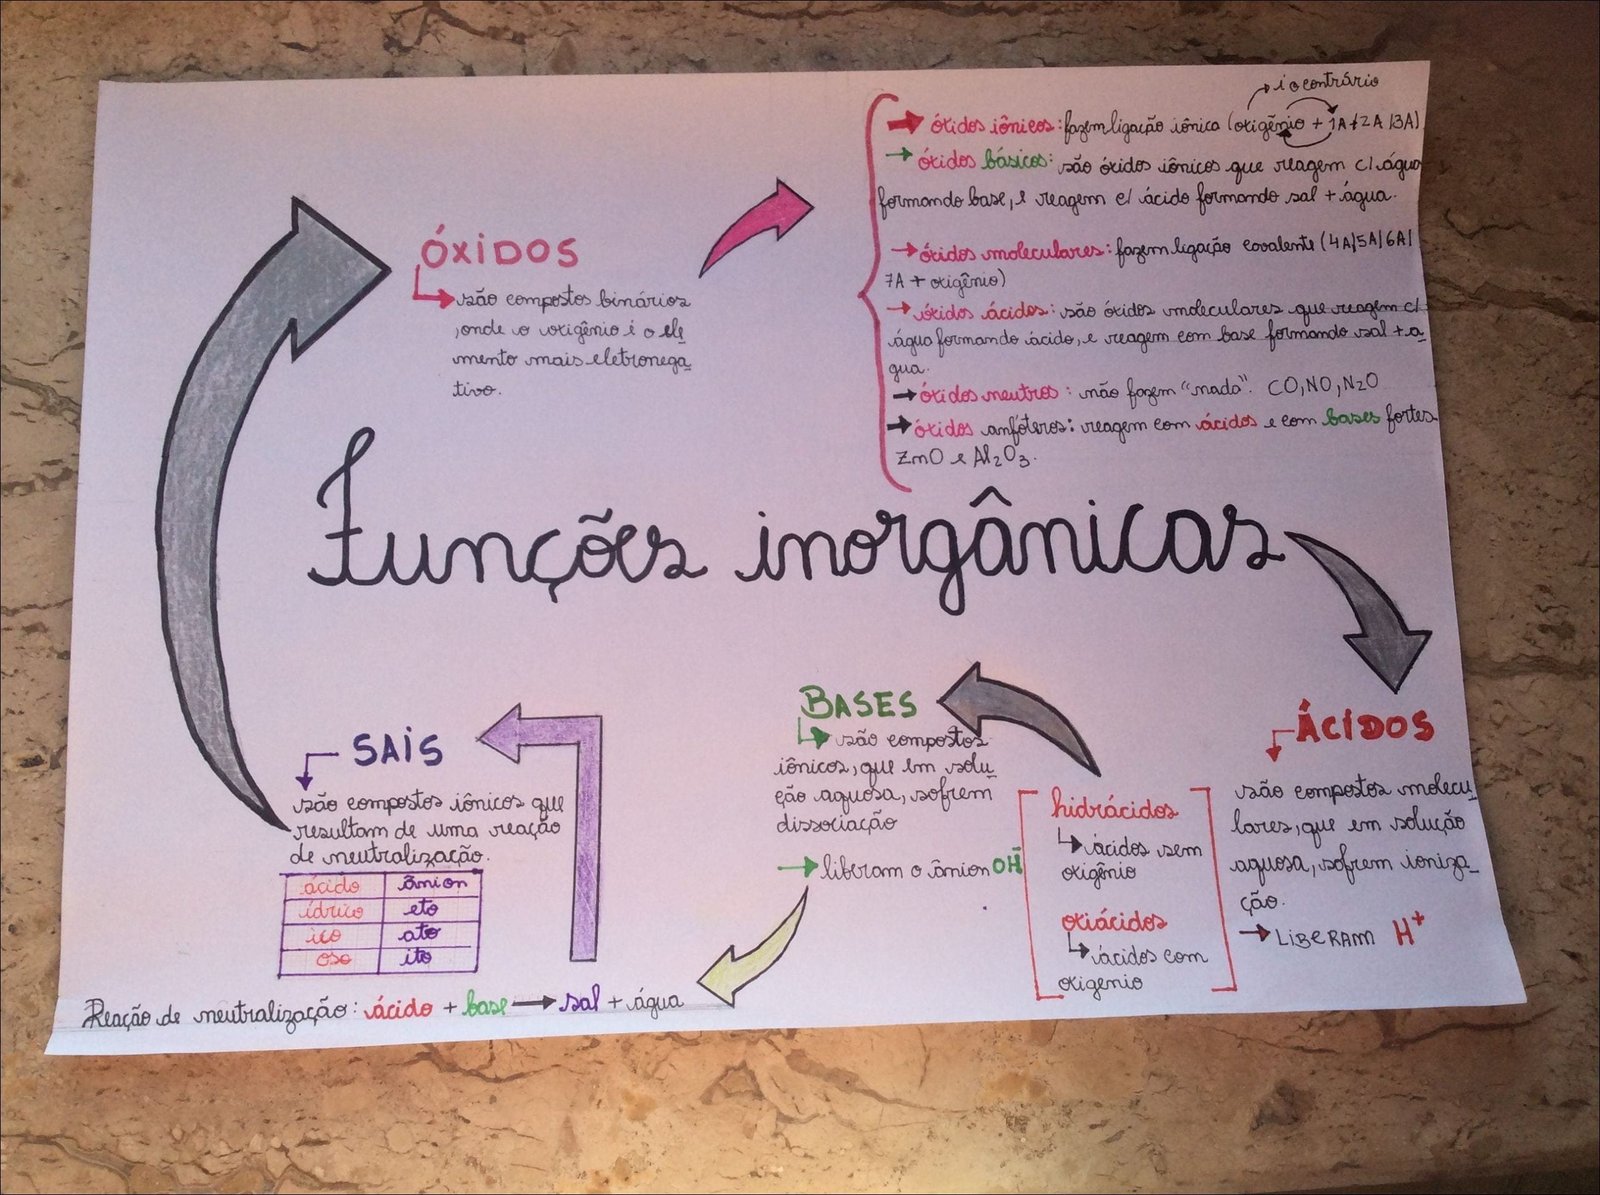 Funções inorgânicas
ÁCIDOS
são compostos molecu
lares, que em solução
aquosa, sofrem ioniza_
ção.
LIBERAM H+
hidrácidos
ácidos sem
oxigênio
oxiácidos
ácidos com
oxigenio
BASES
são compostos
iônicos, que em solu_
ção aquosa, sofrem
dissociação
liberam o ânion OH-
Reação de neutralização: ácido + base → sal + água
SAIS
são compostos iônicos que
resultam de uma reação
de neutralização.
ácido ânion
ídrico eto
ico ato
oso ito
ÓXIDOS
são compostos binários
,onde o oxigênio é o ele
mento mais eletronega_
tivo.
i o contrário
óxidos iônicos: fazem ligação iônica (oxigênio + 1A+2A/3A)
óxidos básicos: são óxidos iônicos que reagem c/ água
formando base, e reagem c/ ácido formando sal + água.
óxidos moleculares: fazem ligação covalente (4A/5A/6A/
7A + oxigênio)
óxidos ácidos: são óxidos moleculares que reagem c/
água formando ácido, e reagem com base formando sal + á_
gua.
óxidos neutros: não fazem "nada". CO, NO, N2O
óxidos anfóteros: reagem com ácidos e com bases fortes
ZnO e Al2O3.